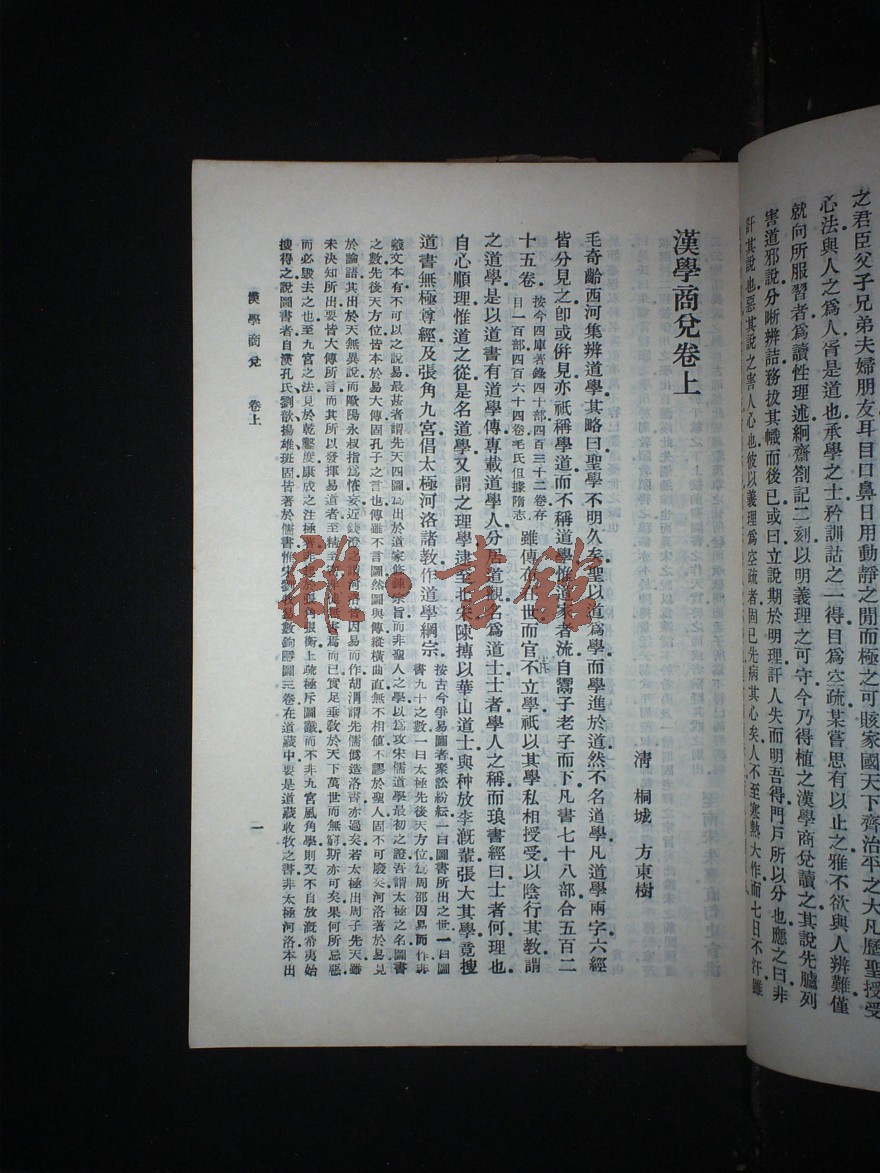 之君臣父子兄弟夫婦朋友耳目口鼻日用動靜之閒而極之可賅家國天下齊治平之大凡歷聖授受
心法與人之爲人胥是道也承學之士矜訓詁之一得目爲空疏某嘗思有以止之雅不欲與人辨難僅
就向所服習者爲讀性理述絅齋劄記二刻以明義理之可守今乃得植之漢學商兌讀之其說先臚列
害道邪說分晰辨詰務拔其幟而後已或曰立說期於明理訐人失而明吾得門戶所以分也應之曰非
訐其說也惡其說之害人心也彼以義理爲空疏者固已先病其心矣人不至寒熱大作而七日不汗雖
漢學商兌卷上
清 桐城 方東樹
毛奇齡西河集辨道學其略曰聖學不明久矣聖以道爲學而學進於道然不名道學凡道學兩字六經
皆分見之卽或倂見亦祇稱學道而不稱道學惟道家者流自鬻子老子而下凡書七十八部合五百二
十五卷 按今四庫著錄四十部四百三十二卷存目一百部四百六十四卷毛氏但據隋志 雖傳布在世而官不立學祇以其學私相授受以陰行其教謂
之道學是以道書有道學傳專載道學人分居道觀名爲道士士者學人之稱而琅書經曰士者何理也
自心順理惟道之從是名道學又謂之理學逮至北宋陳摶以華山道士與种放李漑輩張大其學竟搜
道書無極尊經及張角九宮倡太極河洛諸教作道學綱宗 按古今爭易圖者聚訟紛紜一曰圖書所出之世一曰圖書九十之數一曰太極先後天方位爲周邵因易而作非
羲文本有不可以之說易最甚者謂先天四圖爲出於道家修鍊宗旨而非聖人之學以爲攻宋儒道學最初之證吾謂太極之名圖書
之數先後天方位皆本於易大傳固孔子之言也傳雖不言圖然圖與傳縱橫曲直無不相値不謬於聖人固不可廢矣河洛著於易見
於論語其出於天無異說而歐陽永叔指爲怪妄近錢澄之謂河洛皆因易而作胡渭謂先儒僞造洛書亦過矣若太極出周子先天雖
未決知所出要皆大傳所言而其所以發揮易道者至精至
書焉而已實足垂敎於天下萬世而無窮斯亦可矣果何所忌惡
而必毀去之也至九宮之法見於乾鑿度康成之注極著非
張衡上疏極斥圖讖而不非九宮風角學則又不自放漑希夷始
搜得之說圖書者自漢孔氏劉歆揚雄班固皆著於儒書惟宋劉牧易數鉤隱圖三卷在道藏中要是道藏收牧之書非太極河洛本出
漢學商兌 卷上
一
雜·書館